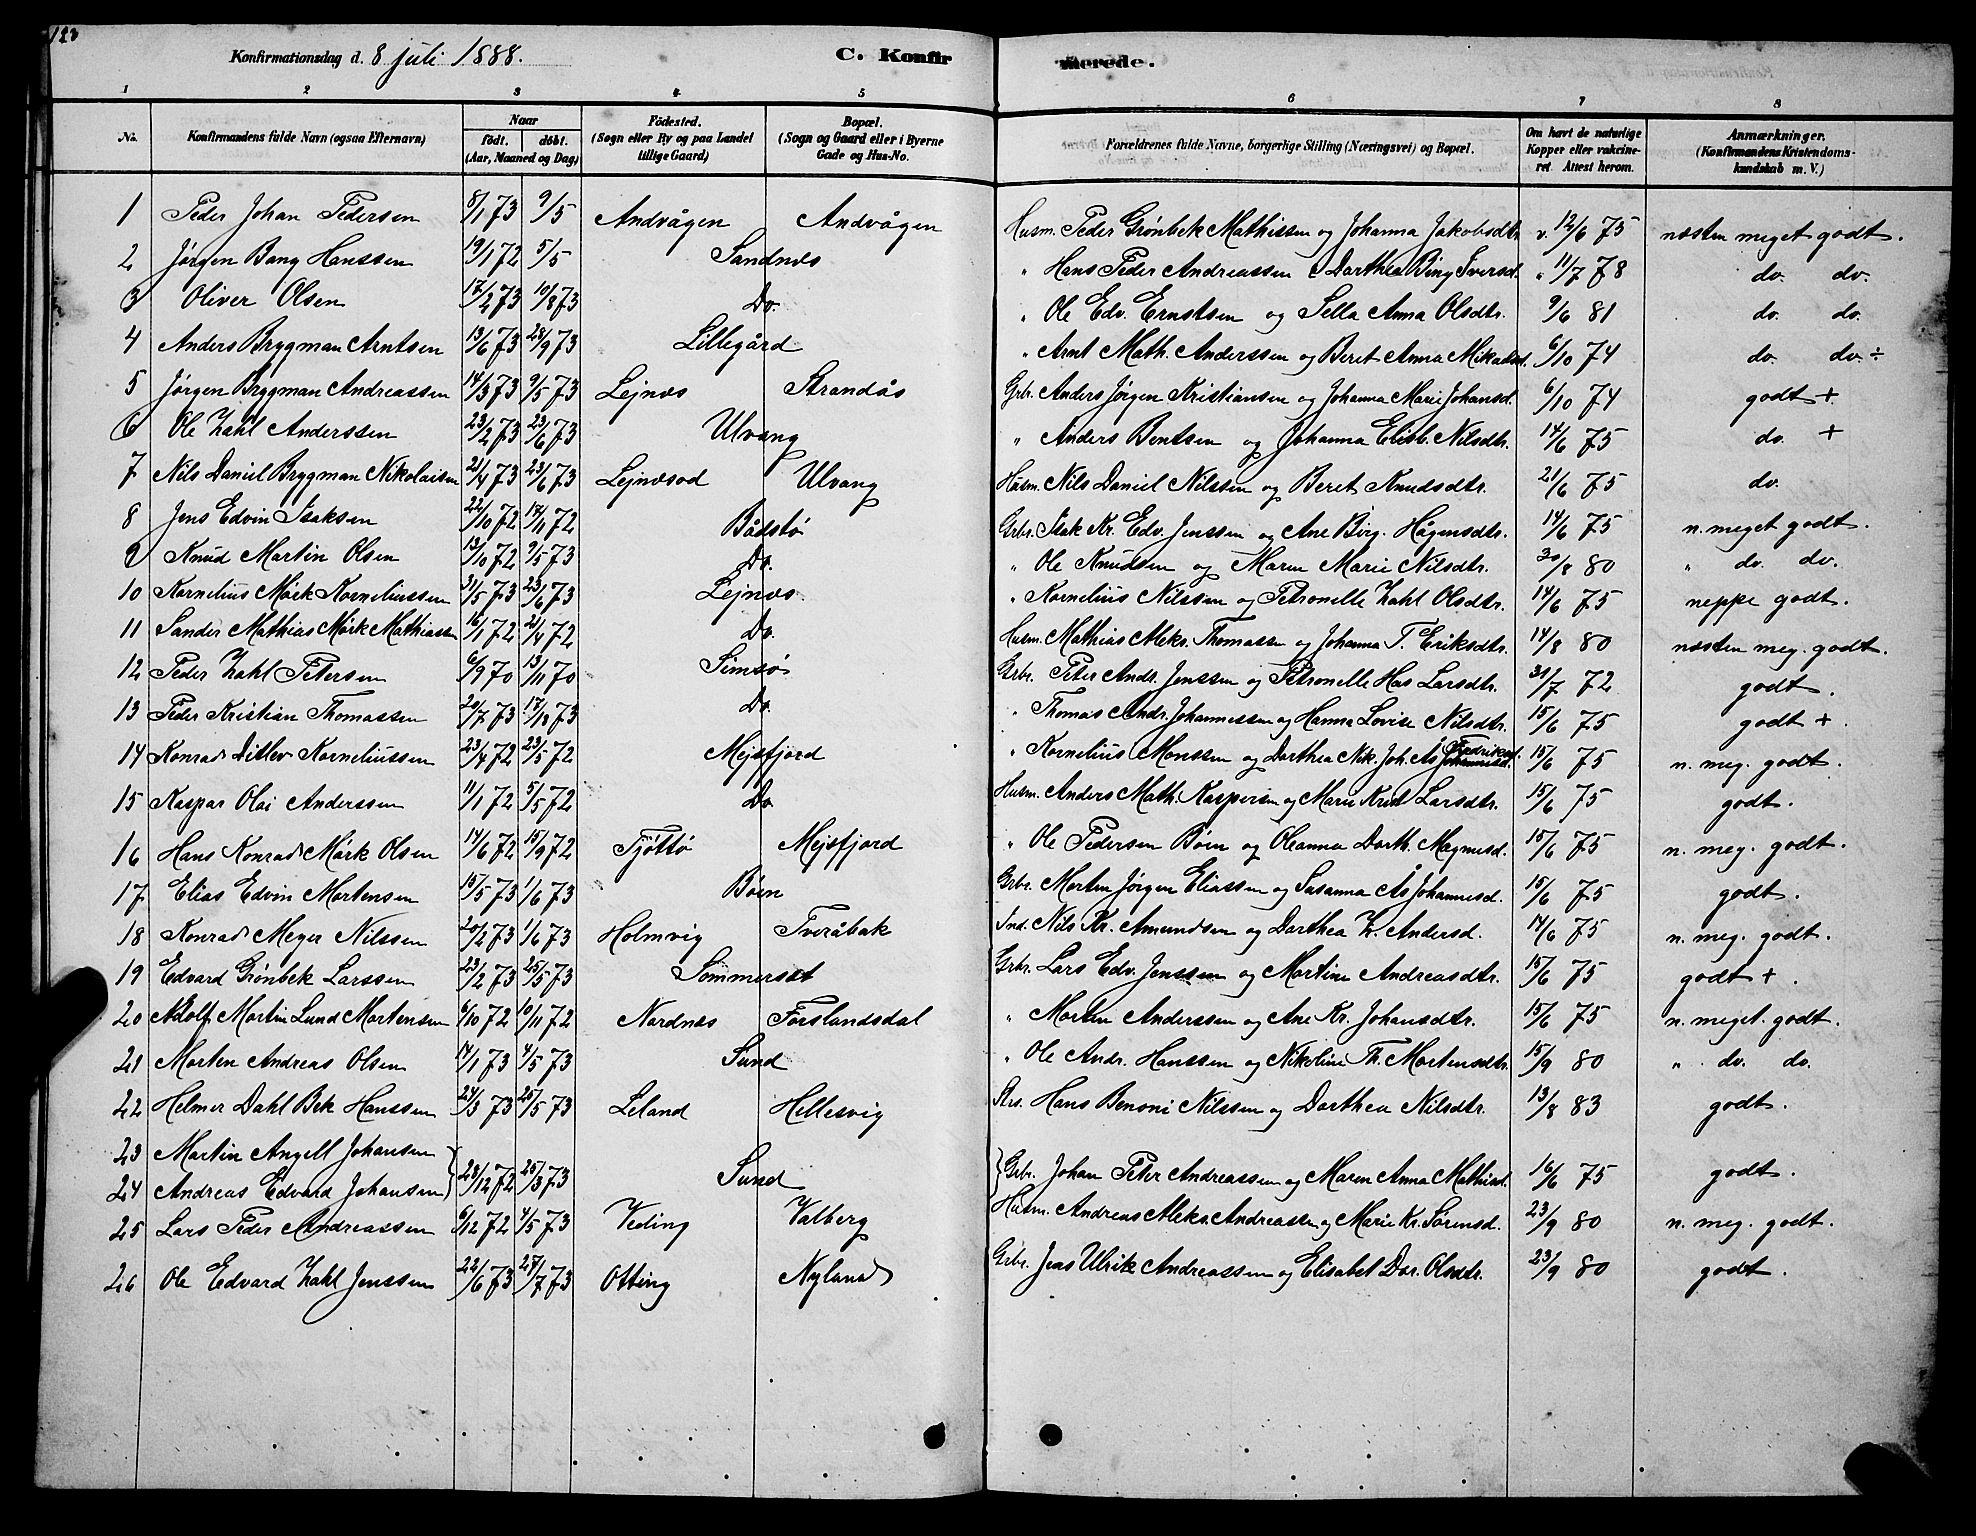 123
Konfirmationsdag d. 8 juli 1888. C. Konfirmerede.
1 2 3 4 5 6 7 8
No. Konfirmandens fulde Navn (ogsaa Efternavn) Naar født. døbt. (Aar, Maaned og Dag) Fødested. (Sogn eller By og paa Landet tillige Gaard) Bopæl. (Sogn og Gaard eller i Byerne Gade og Hus-No. Forældrenes fulde Navne, borgerlige Stilling (Næringsvei) og Bopæl. Om havt de naturlige Kopper eller vakcineret Attest herom. Anmærkninger. (Konfirmandens Kristendomskundskab m. V.)
1 Peder Johan Pedersen 8/1 73 9/5 Andvågen Andvågen Husm. Peder Grønbek Mathissen og Johanna Jakobsdtr. v. 12/6 75 næsten meget godt.
2 Jørgen Bang Hanssen 19/1 72 5/5 Sandnæs " Hans Peder Andreassen Darthea Bing Iversd. " 11/7 78 do. do.
3 Oliver Olsen 17/2 73 10/8 73 Do. " Ole Edv. Ernstsen og Sella Anna Olsdtr. 9/6 81 do. do.
4 Anders Brygman Arntsen 13/6 73 28/9 73 Lillegård " Arnt Math. Anderssen og Beret Anna Mikalsd. 6/10 74 do. do. ÷
5 Jørgen Brygman Andreassen 14/3 73 9/5 73 Lejnæs Strandås Grbr. Anders Jørgen Kristiansen og Johanna Marie Johansd. 6/10 74 godt +
6 Ole Zahl Anderssen 23/2 73 23/6 73 Ulvang " Anders Bentsen og Johanna Elisb. Nilsdtr. 14/6 75 do. +
7 Nils Daniel Brygman Nikolaisen 21/4 73 23/6 73 Lejnæsod Ulvang Husm. Nils Daniel Nilssen og Beret Knudsdtr. 21/6 75 do.
8 Jens Edvin Isaksen 22/10 72 17/11 72 Bådstø Grbr. Isak Kr. Edv. Jenssen og Ane Birg. Hågensdtr. 14/6 75 n. meget godt.
9 Knud Martin Olsen 13/10 72 9/5 73 Do. " Ole Knudsen og Maren Marie Nilsdtr. 30/8 80 " do. do.
10 Kornelius Mørk Korneliussen 31/5 73 23/6 73 Lejnæs. " Kornelius Nilssen og Petronelle Zahl Olsdtr. 14/6 75 neppe godt.
11 Sander Mathias Mørk Mathiassen 16/1 72 21/4 72 Do. Husm. Mathias Aleks. Thomassen og Johanna T. Eriksdtr. 14/8 80 næsten meg. godt.
12 Peder Zahl Petersen 6/9 70 13/11 70 Simsø Grbr. Peter Andr. Jenssen og Petronelle Has Larsdtr. 31/7 72 godt.
13 Peder Kristian Thomassen 20/7 73 17/8 73 Do. " Thomas Andr. Johannessen og Hanna Lovise Nilsdtr. 15/6 75 godt +
14 Konrad Ditlev Korneliussen 23/4 72 23/5 72 Mejsfjord " Kornelius Monssen og Darthea Nik. Joh. Ås Fredriksd. 15/6 75 n. meg. godt.
15 Kaspar Olai Anderssen 11/1 72 5/5 72 Do Husm. Anders Math. Kaspersen og Marie Krist Larsdtr. 15/6 75 godt.
16 Hans Konrad Mørk Olsen 14/6 72 15/9 72 Tjøttø Mejsfjord " Ole Pedersen Bøen og Oleanna Dorth. Magnusd. 15/6 75 n. meg. godt.
17 Elias Edvin Mortensen 15/5 73 1/6 73 Bøen Grbr. Morten Jørgen Eliassen og Susanna Ås Johannesd. 15/6 75 godt.
18 Konrad Meyer Nilssen 20/2 73 1/6 73 Holmvig Tveråbak Ind. Nils Kr. Amundsen og Darthea Z. Andersd. 14/6 75 n. meg. godt.
19 Edvard Grønbek Larssen 23/2 73 25/5 73 Sommersæt Grbr. Lars Edv. Jenssen og Martine Andreasdtr. 15/6 75 godt +.
20 Adolf Martin Lund Mortensen 6/10 72 10/11 72 Nordnæs Forslandsdal " Morten Anderssen og Ane Kr. Johansdtr. 15/6 75 n. meget godt.
21 Morten Andreas Olsen 14/1 73 4/5 73 Sund " Ole Andr. Hanssen og Nikoline Th. Mortensdtr. 15/9 80 " do. do.
22 Helmer Dahl Bek Hanssen 24/3 73 25/5 73 Leland Hellesvig Hans Benoni Nilssen og Darthea Nilsdtr. 13/8 83 godt.
23 Martin Angell Johansen
24 Andreas Edvard Johansen 23/12 72 25/3 73 Sund Grbr. Johan Peter Andreassen og Maren Anna Mathiasd. 16/6 75 godt.
25 Lars Peder Andreassen 6/12 72 4/5 73 Veding Valberg Husm. Andreas Aleks. Andreassen og Marie Kr. Sørensd. 23/9 80 n. meg. godt.
26 Ole Edvard Zahl Jenssen 22/6 73 27/7 73 Otting Nyland Grbr. Jens Ulrik Andreassen og Elisabet Dor. Olsdtr. 23/9 80 godt.